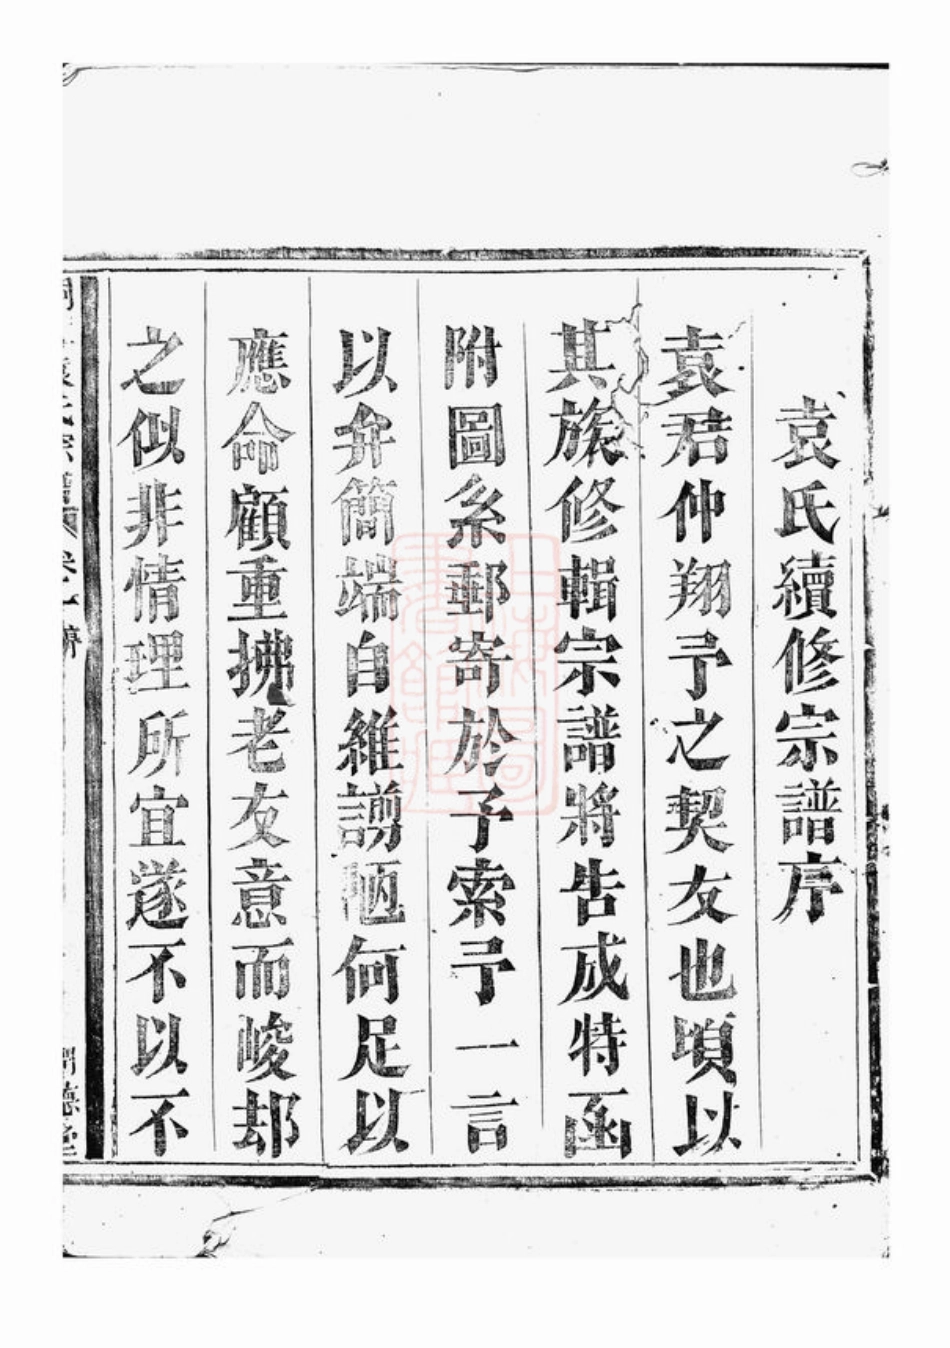 袁氏續修宗譜序
袁君仲翔予之契友也頃以
其族修輯宗譜將告成特函
附圖系郵寄於予索予一言
以弁簡端自維謭陋何足以
應命顧重拂老友意而峻却
之似非情理所宜遂不以不
袁氏宗譜 卷一 德堂